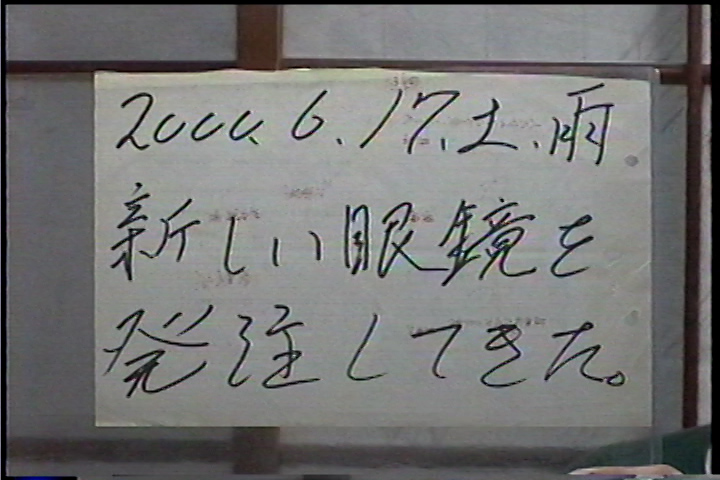 2000.6.17.土.雨
新しい眼鏡を
発注してきた。